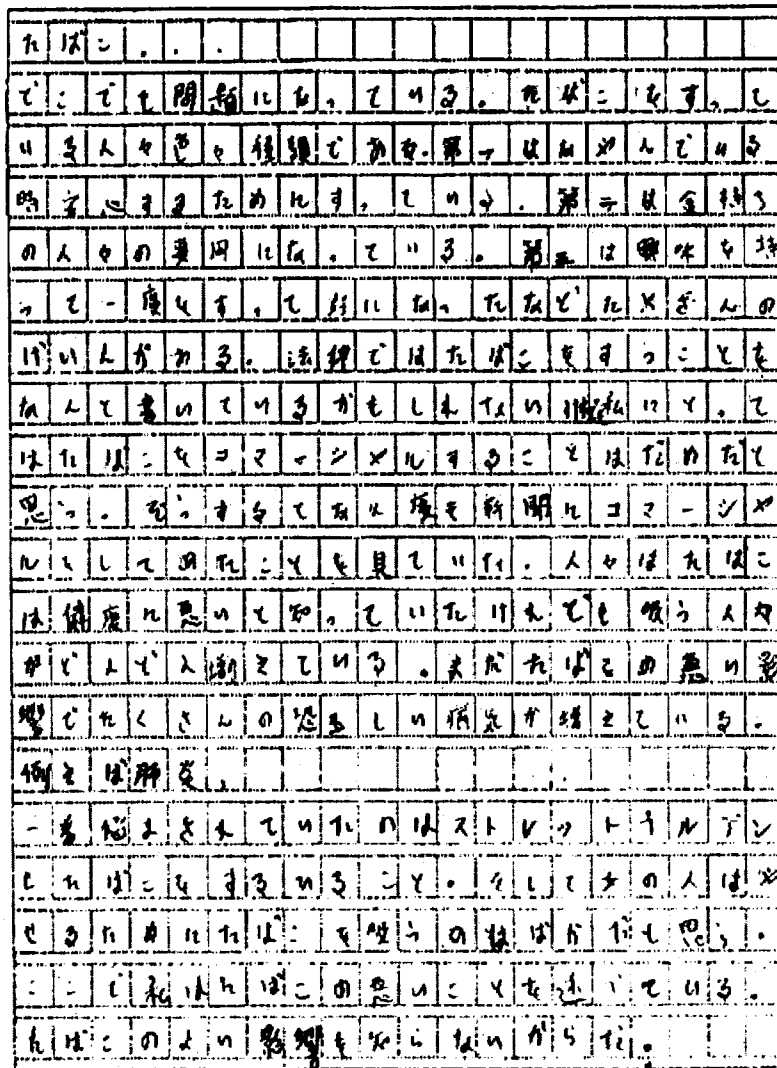 たばこ...
どこでも問題になっている。たばこをすって
いる人々色々種類である。第一はなやんでいる
時安心するためにすっている。第二は金持ち
の人々の費用になっている。第三は興味を持
って一度をすって好になったなどたくさんの
げいんがある。法律ではたばこをすうことを
なんと書いているかもしれない 私にとって
はたばこをコマーシャルすることはだめだと
思う。そうするて 度を新聞にコマーシャ
ルとしてのたことを見ていた。人々はたばこ
は健康に悪いと知っていたけれども吸う人々
がどんどん増えている。まだたばこの悪い影
響でたくさんの恐ろしい病気が増えている。
例えば肺炎。
一番 まされていたのはストレットチルデン
もたばこをするいること。そして女の人はや
せるためにたばこを吸うの ばかだも思う。
ここで私はたばこの悪いことを述べている。
たばこのよい影響を知らないからだ。